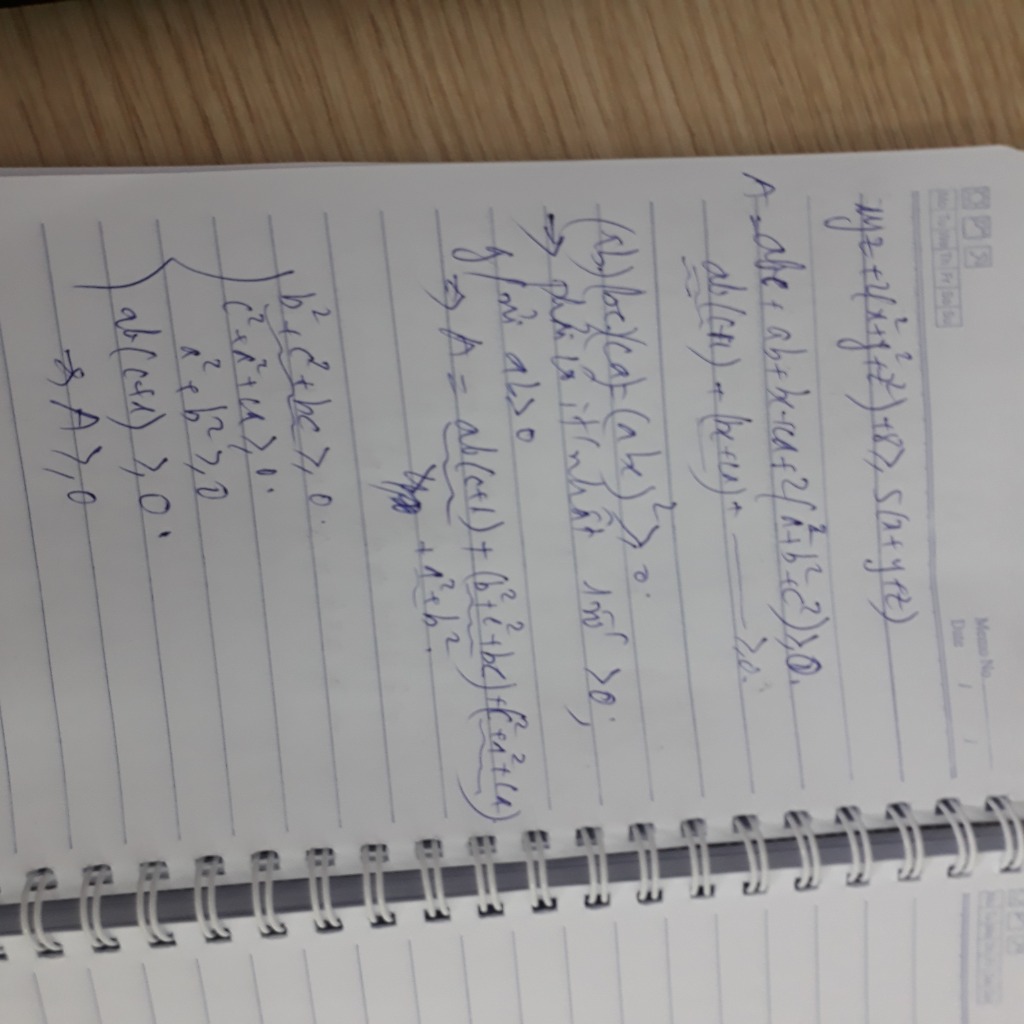 Memo No.
Date / /
xyz + 2(x²+y²+z²) + 8 ≥ 5(x+y+z)
A = abc + ab + bc + ca + 2(a²+b²+c²) ≥ 0.
ab(c+1) + (bc+ca) + ≥ 0.
(ab)(bc)(ca) = (abc)² ≥ 0.
⇒ phải có ít nhất 1 số ≥ 0,
g/sử ab ≥ 0
⇒ A = ab(c+1) + (b²+c²+bc) + (c²+a²+ca)
+ a²+b².
b²+c²+bc ≥ 0.
c²+a²+ca ≥ 0.
a²+b² ≥ 0
ab(c+1) ≥ 0.
⇒ A ≥ 0